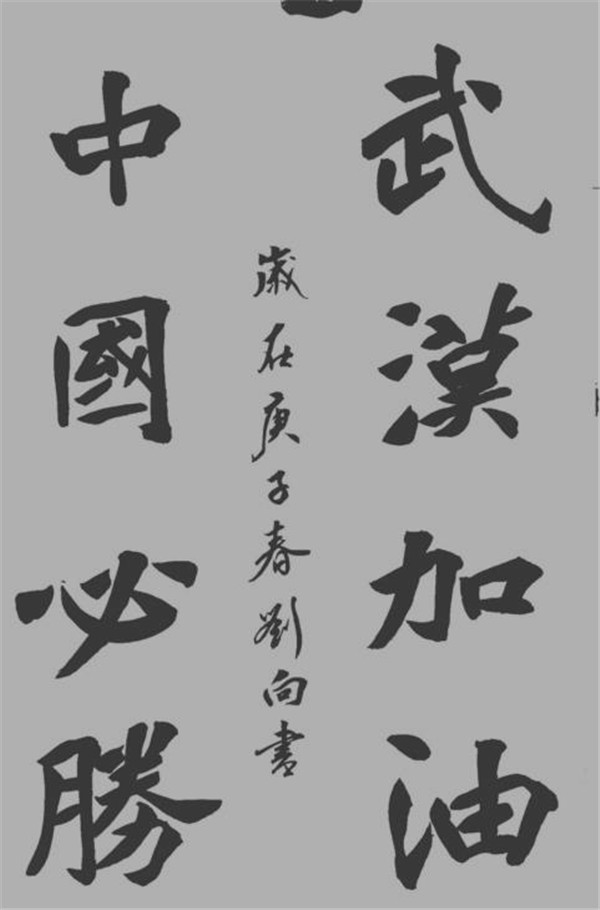 武漢加油
歲在庚子春劉向書
中國必勝